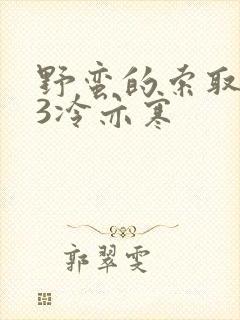 野蛮的索取
3冷亦寒
郭翠雯